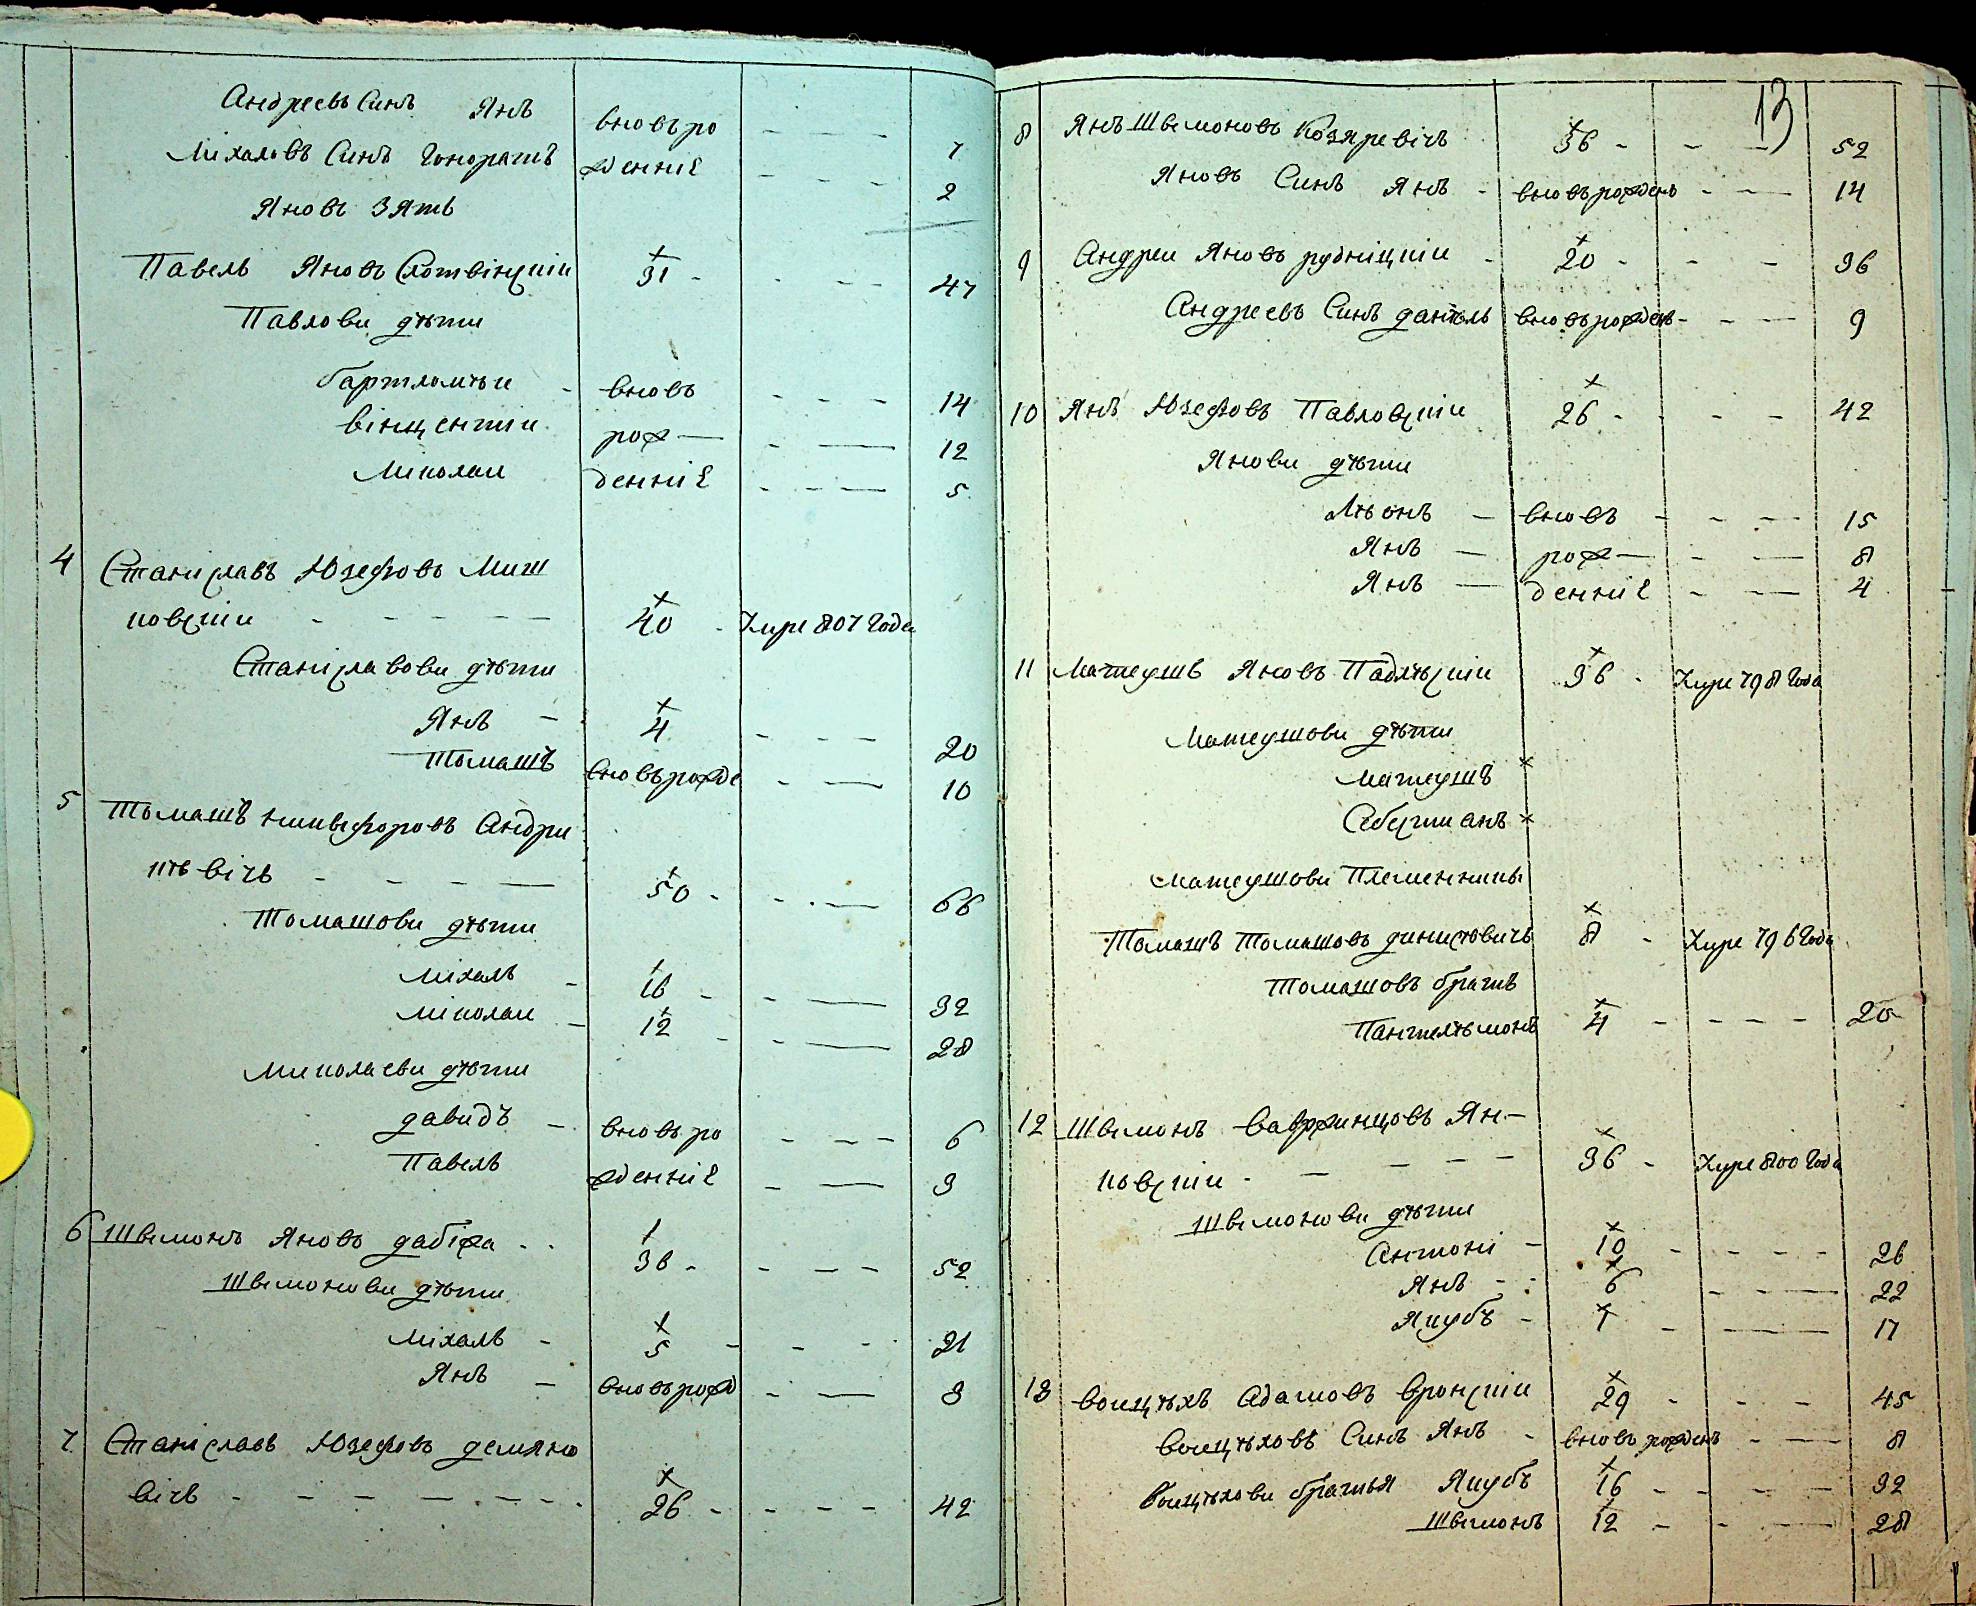 Андреевъ Синъ Янъ вновъ ро - - - 7
Міхаловъ Синъ Гоноратъ жденніе - - - 2
Яновъ Зять
Павелъ Яновъ Слотвінскіи 31 - - - - 47
Павлови дѣти
бартломѣи - вновъ - - - 14
вінцентіи рож - - 12
Миколаи денніе - - - 5
4 Станіславъ Юзефовъ Мит
ковскіи - - - - 40 - Умре 807 Года
Станіславови дѣти
Янъ - 4 - - - 20
Томашъ вновърожде - - - 10
5 Томашъ Никифоровъ Андри
кѣвічъ - - - - 50 - - - - 66
Томашови дѣти
Міхалъ - 16 - - - 32
Миколаи - 12 - - - 28
Миколаеви дѣти
давидъ - вновъ ро - - - 6
Павелъ жденніе - - - 3
6 Швимонъ Яновъ дабіжа - - 36 - - - - 52
Швимонови дѣти
Міхалъ - 5 - - - 21
Янъ - вновърожд - - 3
7 Станіславъ Юзефовъ демяно
вічъ - - - - - - - 26 - - - - 42
13
8 Янъ Швимоновъ Козяревічъ 36 - - - 52
Яновъ Синъ Янъ - вновърожденъ - - - 14
9 Андреи Яновъ рудніцкіи - 20 - - - 36
Андреевъ Синъ данѣль вновърожден - - - 9
10 Янъ Юзефовъ Павловскіи 26 - - - - 42
Янови дѣти
Лѣонъ - вновъ - - - 15
Янъ - рож - - - 8
Янъ - денніе - - - 4
11 Матеушъ Яновъ Падлѣскіи 36 - Умре 798 Года
Матеушови дѣти
Матеушъ ×
Себестианъ ×
Матеушови Племенники
Томашъ Томашовъ динисовичъ 8 - Умре 796 Года
Томашовъ братъ
Пантелѣмонъ 4 - - - - 20
12 Швимонъ Вавржинцовъ Ян-
ковскіи - - - - - 36 - Умре 800 Года
Швимонови дѣти
Антоні - 10 - - - - 26
Янъ - 6 - - - 22
Якубъ - 1 - - 17
13 Воицѣхъ Адамовъ Вронскіи 29 - - - - 45
Воицѣховъ Синъ Янъ - вновъ рожденъ - - 8
Воицѣхови братья Якубъ 16 - - - - 32
Швимонъ 12 - - - 28